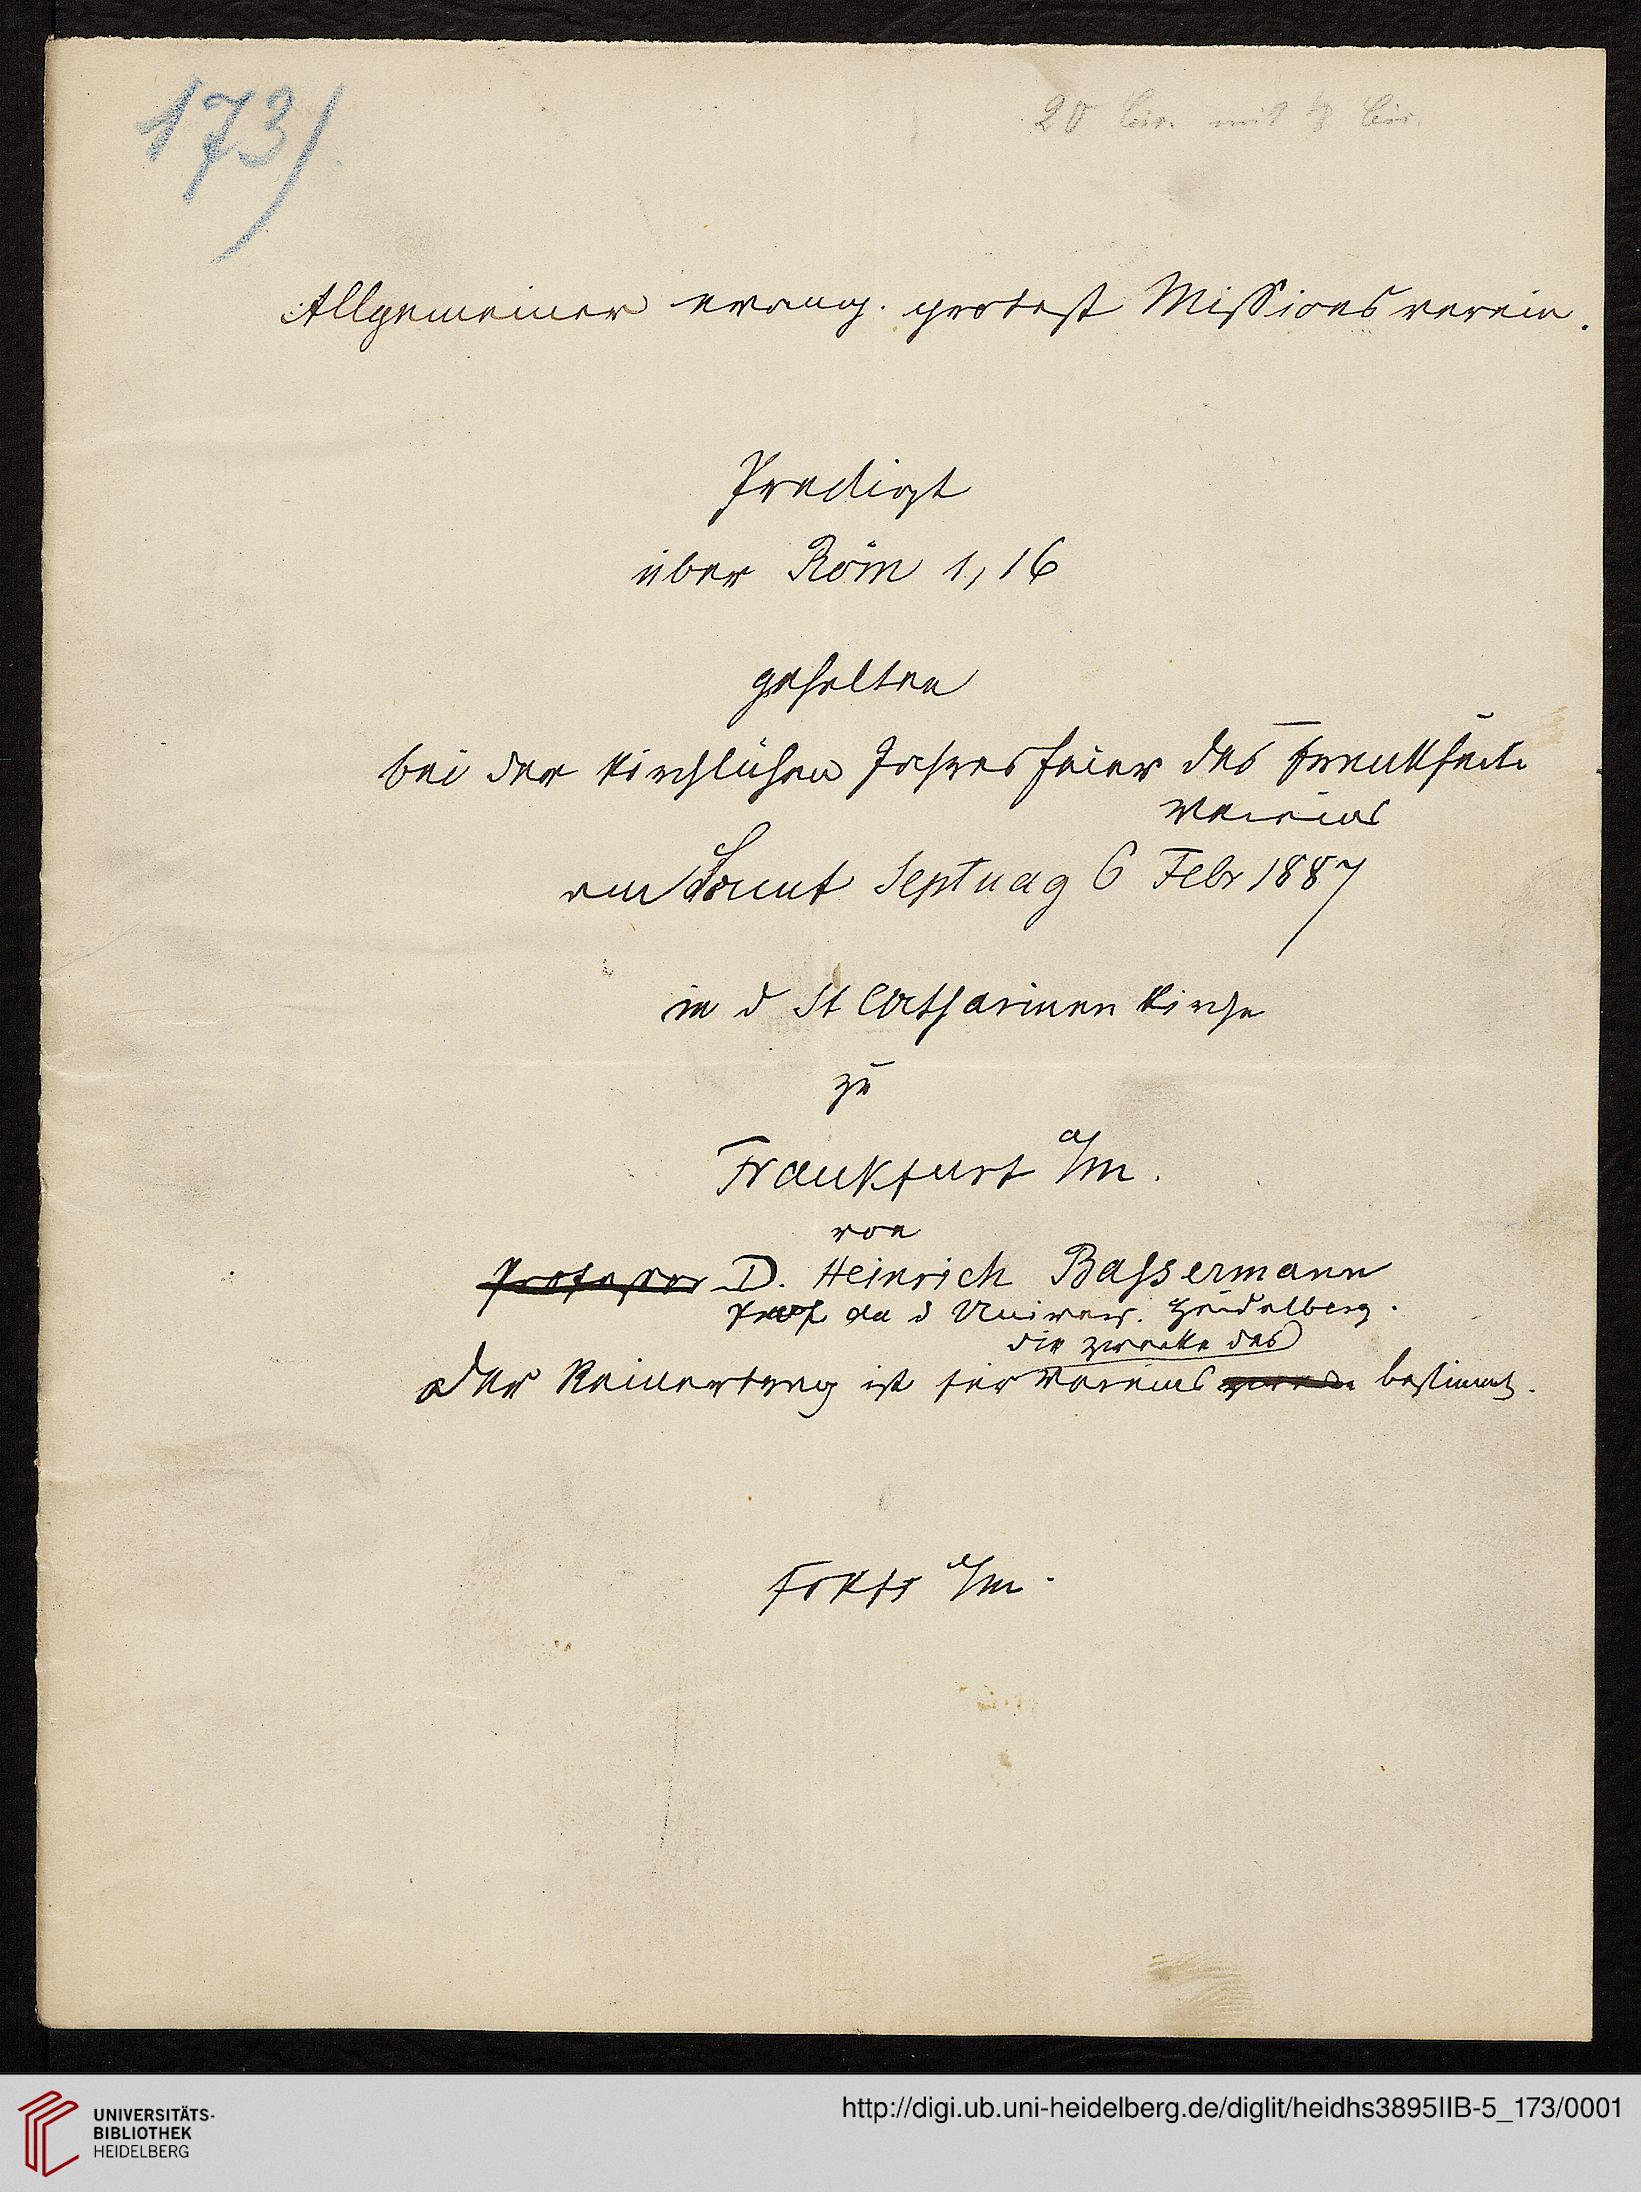 173)
20 mit
Allgemeiner evang. protest Missionsverein.
Predigt
über Röm 1,16
gehalten
bei der kirchlichen Jahresfeier des Frankfurter
Vereins
am Sonnt Septuag 6 Febr 1887
in d St Catharinenkirche
zu
Frankfurt a/m.
von
Professor D. Heinrich Bassermann
Prof an d Univers. Heidelberg.
die Zwecke des
Der Reinertrag ist für Vereins bestimmt.
Frkft a/m.
UNIVERSITÄTS-
BIBLIOTHEK
HEIDELBERG
http://digi.ub.uni-heidelberg.de/diglit/heidhs3895IIB-5_173/0001